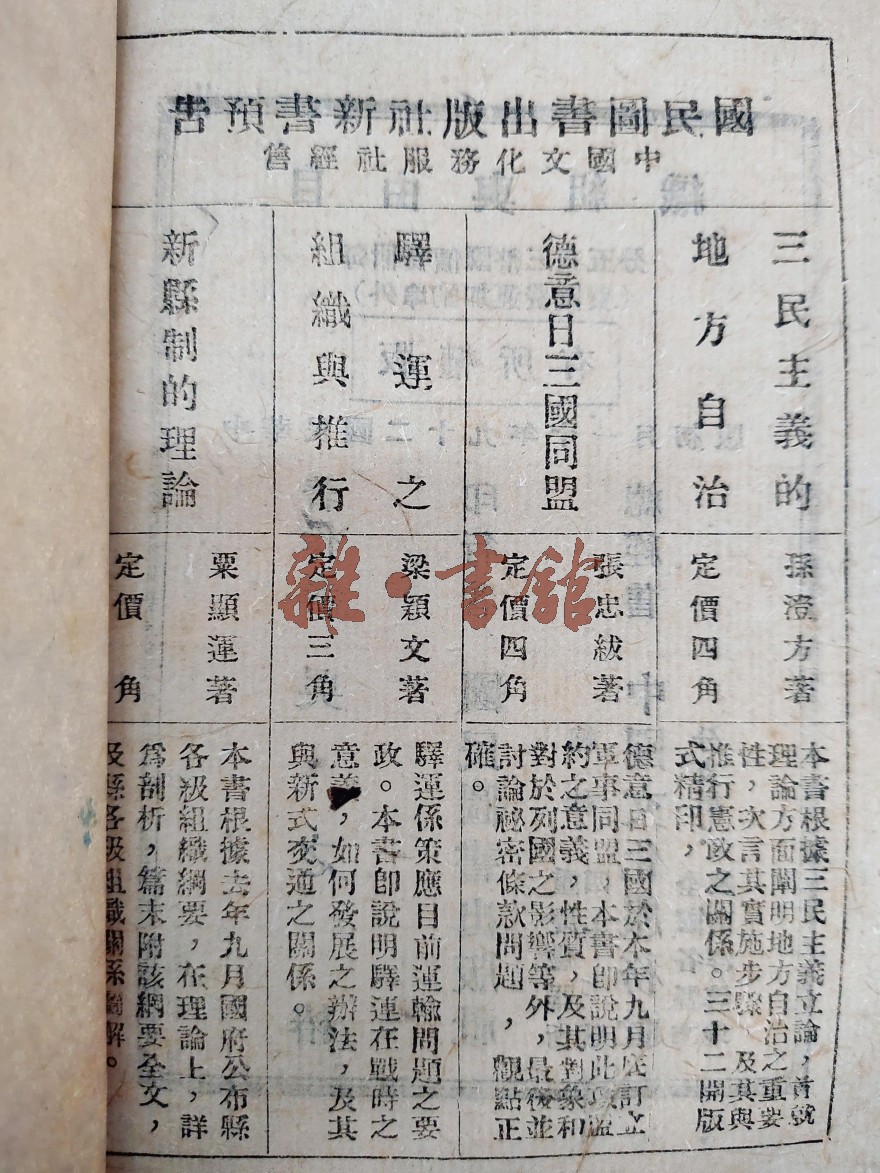 國民圖書出版社新書預告
中國文化服務社經售
三民主義的
地方自治
孫澄方著
定價四角
本書根據三民主義立論，首就
理論方面闡明地方自治之重要
性，次言其實施步驟 及其與
推行憲政之關係。三十二開版
式精印，
德意日三國同盟
張忠紱著
定價四角
德意日三國於本年九月底訂立
軍事同盟，本書即說明此項盟
約之意義，性質，及其對象和
對於列國之影響等 外，最後並
討論祕密條款問題 ，觀點正
確。
驛運之
組織與推行
梁穎文著
定價三角
驛運係策應目前運輸問題之要
政。本書即說明驛運在戰時之
意義，如何發展之辦法，及其
與新式交通之關係。
新縣制的理論
粟顯運著
定價 角
本書根據去年九月國府公布縣
各級組織綱要，在理論上，詳
為剖析，篇末附該綱要全文，
及縣各級組織關係圖解。
雜·書館